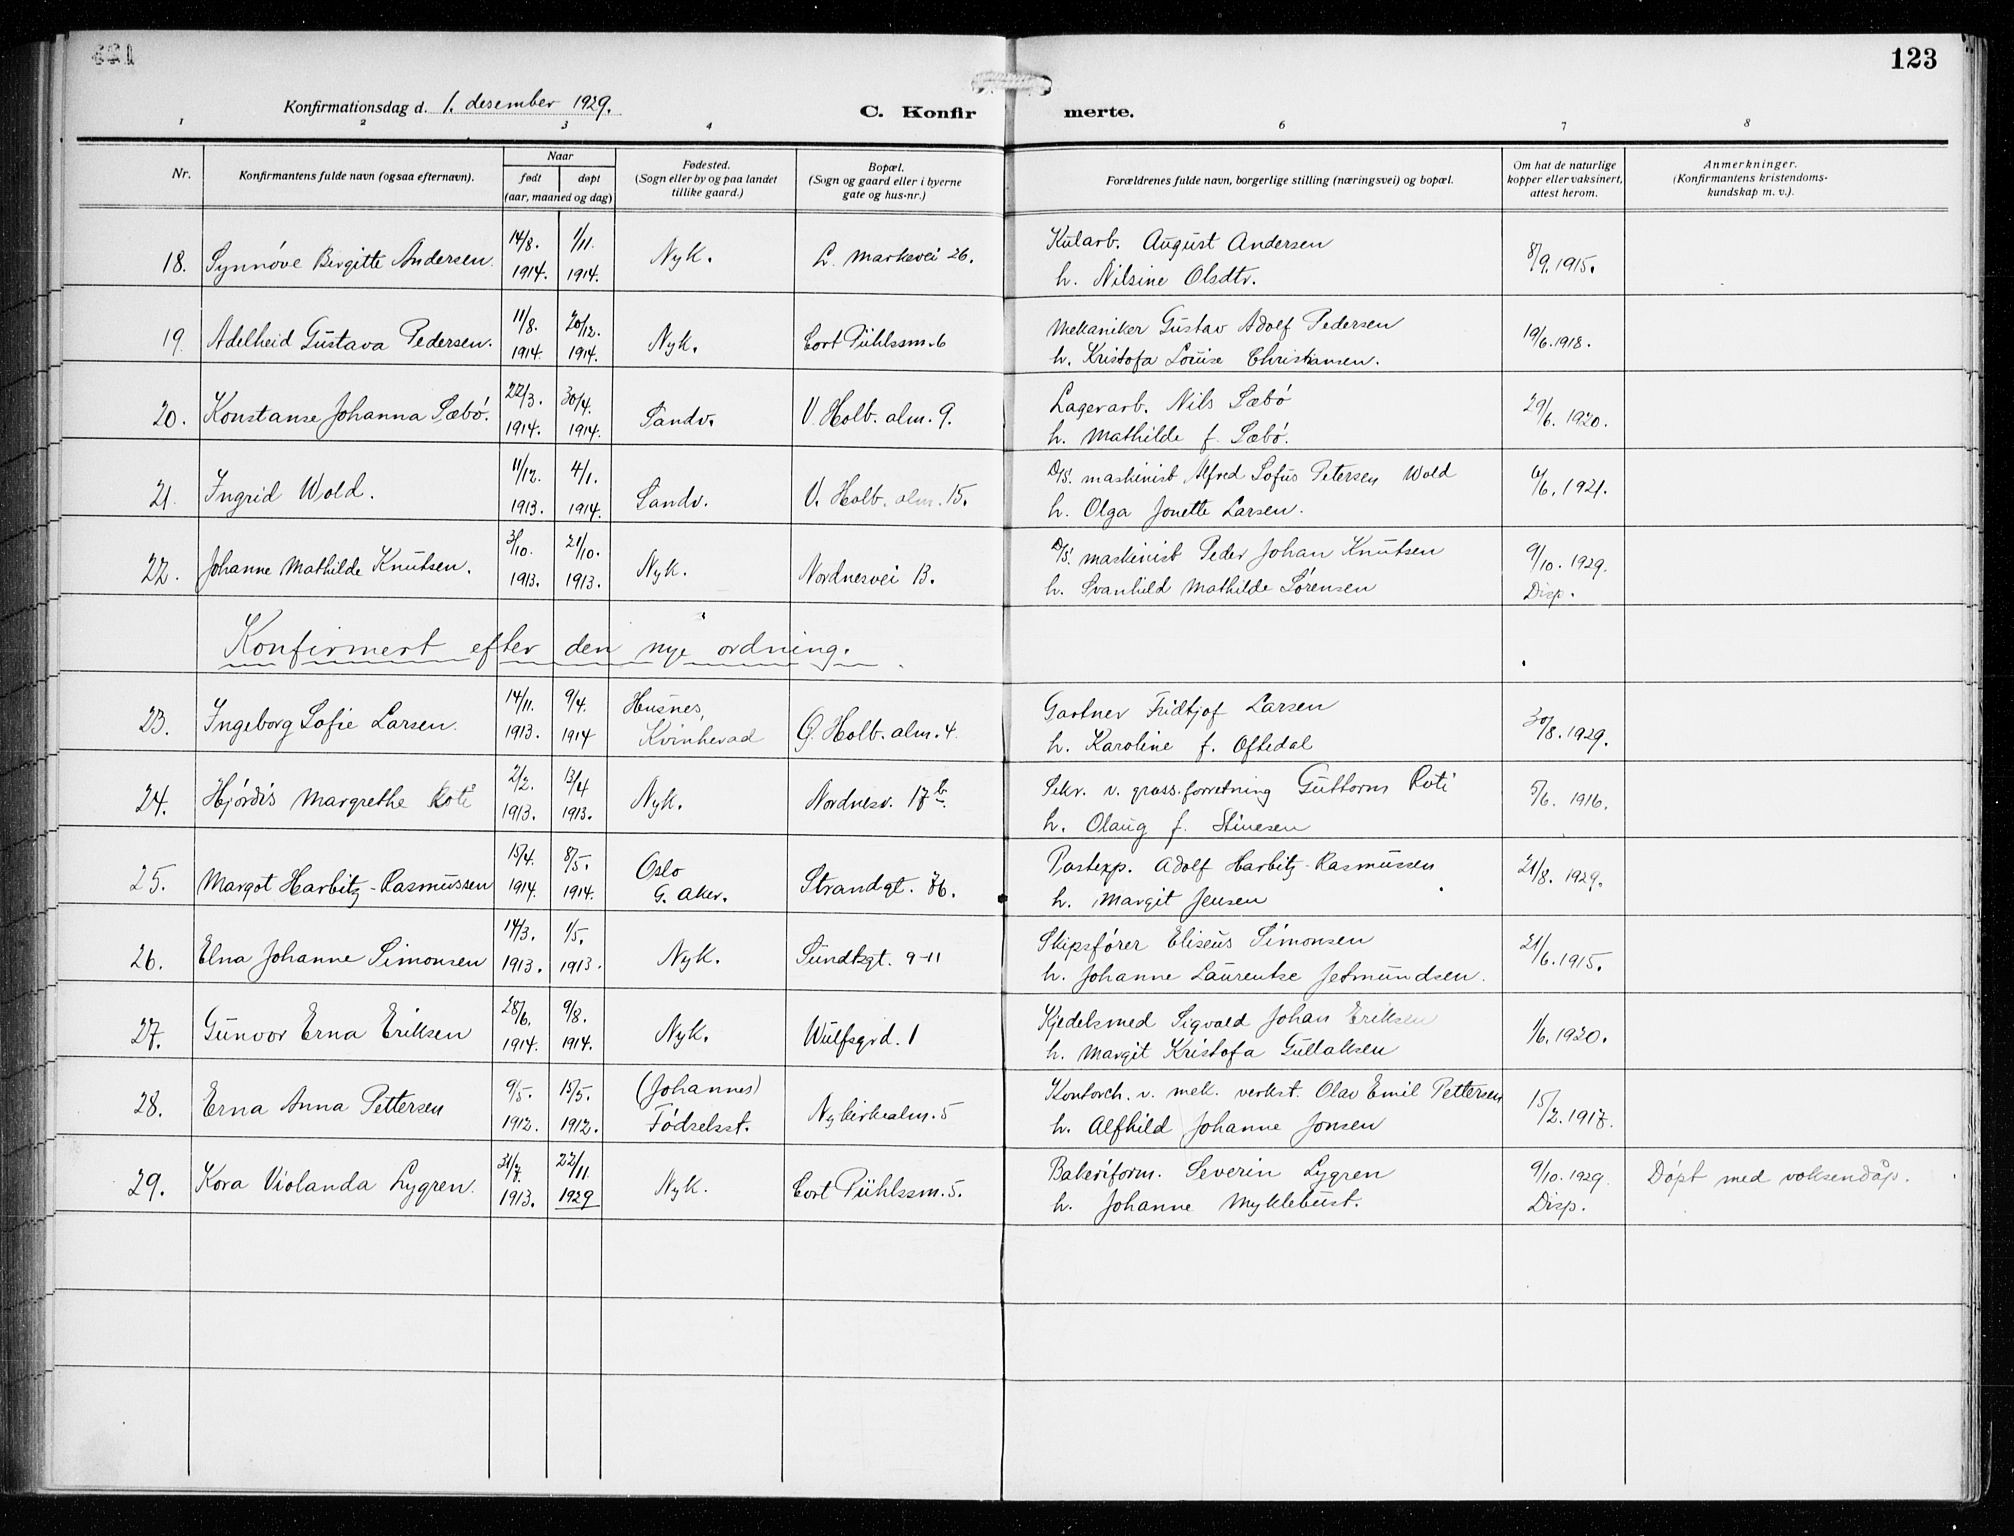 123
Konfirmationsdag d. 1. desember 1929.
C. Konfirmerte.
1 2 3 4 6 7 8
Nr.
Konfirmantens fulde navn (ogsaa efternavn).
Naar
født døpt
(aar, maaned og dag)
Fødested.
(Sogn eller by og paa landet
tillike gaard.)
Bopæl.
(Sogn og gaard eller i byerne
gate og hus-nr.)
Forældrenes fulde navn, borgerlige stilling (næringsvei) og bopæl.
Om hat de naturlige
kopper eller vaksinert,
attest herom.
Anmerkninger.
(Konfirmantens kristendoms-
kundskap m. v.).
14/8. 1/11. Kularb. August Andersen
18. Synnöve Birgitte Andersen. 1914. 1914. Nyk. L. Markevei 26. h. Nilsine Olsdtr. 8/9. 1915.
11/8. 20/12. Mekaniker Gustav Adolf Pedersen
19. Adelheid Gustava Pedersen. 1914. 1914. Nyk. Cort Pühlssm. 6 h. Kristofa Louise Christiansen. 19/6. 1918.
22/3. 30/4. Lagerarb. Nils Sæbö
20. Konstanse Johanna Sæbö. 1914. 1914. Sandv. V. Holb. alm. 9. h. Mathilde f. Sæbö. 29/6. 1920.
11/12. 4/1. D/S. maskinist Alfred Sofus Petersen Wold
21. Ingrid Wold. 1913. 1914. Sandv. V. Holb. alm. 15. h. Olga Jonette Larsen. 6/6. 1921.
3/10. 21/10. D/S. maskinist Peder Johan Knutsen
22. Johanne Mathilde Knutsen. 1913. 1913. Nyk. Nordnesvei 13. h. Svanhild Mathilde Sörensen 9/10. 1929.
Disp.
Konfirmert efter den nye ordning.
14/11. 9/4. Husnes, Gartner Fridtjof Larsen
23. Ingeborg Sofie Larsen. 1913. 1914 Kvinherad Ø. Holb. alm. 4. h. Karoline f. Oftedal 30/8. 1929.
2/2. 13/4 Sekr. v. gross.forretning Guttorm Roti
24. Hjördis Margrethe Roti 1913. 1913. Nyk. Nordnesv. 17b. h. Olaug f. Stinesen 5/6. 1916.
15/4. 8/5. Oslo Postexp. Adolf Harbitz-Rasmussen
25. Margot Harbitz-Rasmussen 1914. 1914. G. Aker. Strandgt. 76. h. Margit Jensen 21/8. 1929.
14/3. 1/5. Skipsförer Eliseus Simonsen
26. Elna Johanne Simonsen 1913. 1913. Nyk. Sundtsgt. 9-11 h. Johanne Laurentse Jetmundsen. 21/6. 1915.
28/6. 9/8. Kjedelsmed Sigvald Johan Eriksen
27. Gunvor Erna Eriksen 1914. 1914. Nyk. Wulfsgrd. 1 h. Margit Kristofa Gullaksen 1/6. 1920.
9/5. 15/5. (Johannes) Kontorch. v. mek. verkst. Olav Emil Pettersen
28. Erna Anna Pettersen 1912. 1912. Födselsst. Nykirkealm. 5 h. Alfhild Johanne Jonsen 15/2. 1917.
31/7. 22/11. Bakeriform. Severin Lygren 9/10. 1929.
29. Kora Violanda Lygren. 1913. 1929 Nyk. Cort Pühlssm. 5. h. Johanne Myklebust. Disp. Döpt med voksendåp.